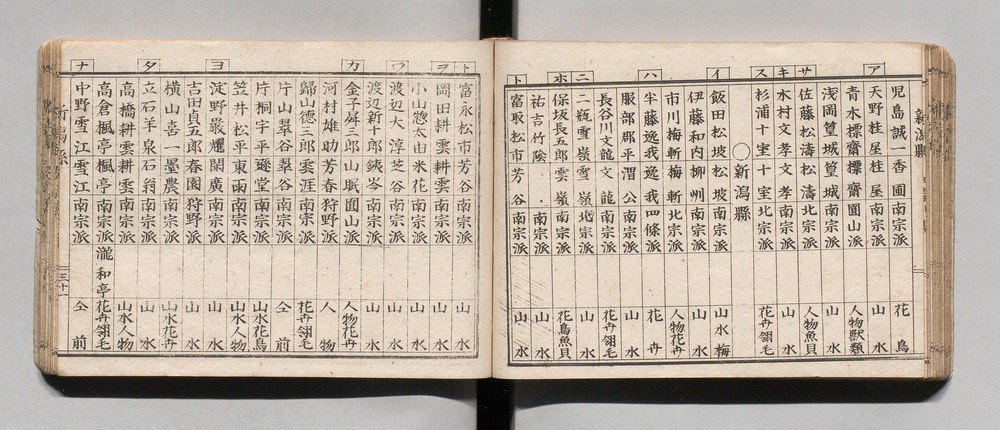 新潟縣
ア
児島誠一 香圃 南宗派 花鳥
天野桂屋 桂屋 南宗派 山水
青木標齋 標齋 圓山派 人物獸類
浅岡篁城 篁城 南宗派 山水
サ
佐藤松濤 松濤 北宗派 人物魚貝
キ
木村文孝 文孝 南宗派 山水
ス
杉浦十室 十室 北宗派 花卉翎毛
〇新潟縣
イ
飯田松坡 松坡 南宗派 山水梅
伊藤和内 柳州 南宗派 山水
市川梅斬 梅斬 北宗派 人物花卉
ハ
半藤逸我 逸我 四條派 花卉
服部郡平 渭公 南宗派 山水
長谷川文龍 文龍 南宗派 花卉翎毛
ニ
二瓶雪嶺 雪嶺 北宗派 山水
ホ
保坂長五郎 雲嶺 南宗派 花鳥魚貝
祐吉竹陰 南宗派 山水
ト
富取松市 芳谷 南宗派 山水
ト
富永松市 芳谷 南宗派 山水
ヲ
岡田耕雲 耕雲 南宗派 山水
小山惣太由 米花 南宗派 山水
ワ
渡辺大淳 芝谷 南宗派 山水
渡辺新十郎 銕岑 南宗派 山水
カ
金子舜三郎 山眠 圓山派 人物花卉
河村雄助 芳春 狩野派 人物
歸山德三郎 雲涯 南宗派 花卉翎毛
片山翠谷 翠谷 南宗派 仝前
片桐宇平 遜堂 南宗派 山水花鳥
笠井松平 東雨 南宗派 山水人物
ヨ
淀野嚴燿 閑廣 南宗派 山水
吉田貞五郎 春園 狩野派 山水
横山喜一 墨農 南宗派 山水花卉
タ
立石羊泉 石翁 南宗派 山水
高橋耕雲 耕雲 南宗派 山水人物
高倉楓亭 楓亭 南宗派 瀧和亭 花卉翎毛
ナ
中野雪江 雪江 南宗派 仝前
新潟縣
三十一